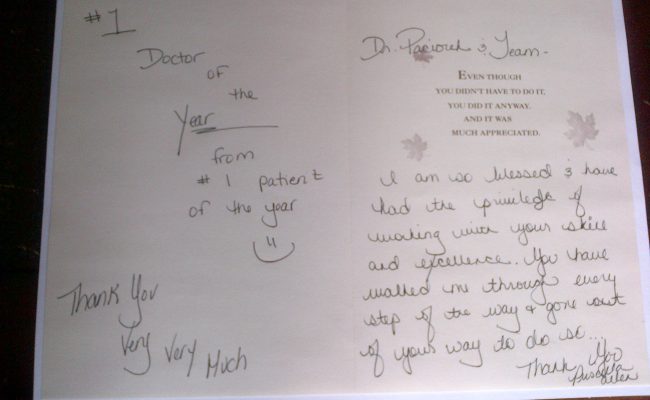 #1
Doctor
of
the
Year
from
# 1 patient
of the year
Thank You
Very Very Much
Dr. Paciorek & Team-
EVEN THOUGH
YOU DIDN'T HAVE TO DO IT,
YOU DID IT ANYWAY.
AND IT WAS
MUCH APPRECIATED.
I am so blessed & have
had the privilege of
working with your skill
and excellence. You have
walked me through every
step of the way & gone out
of your way to do so...
Thank You
Priscilla